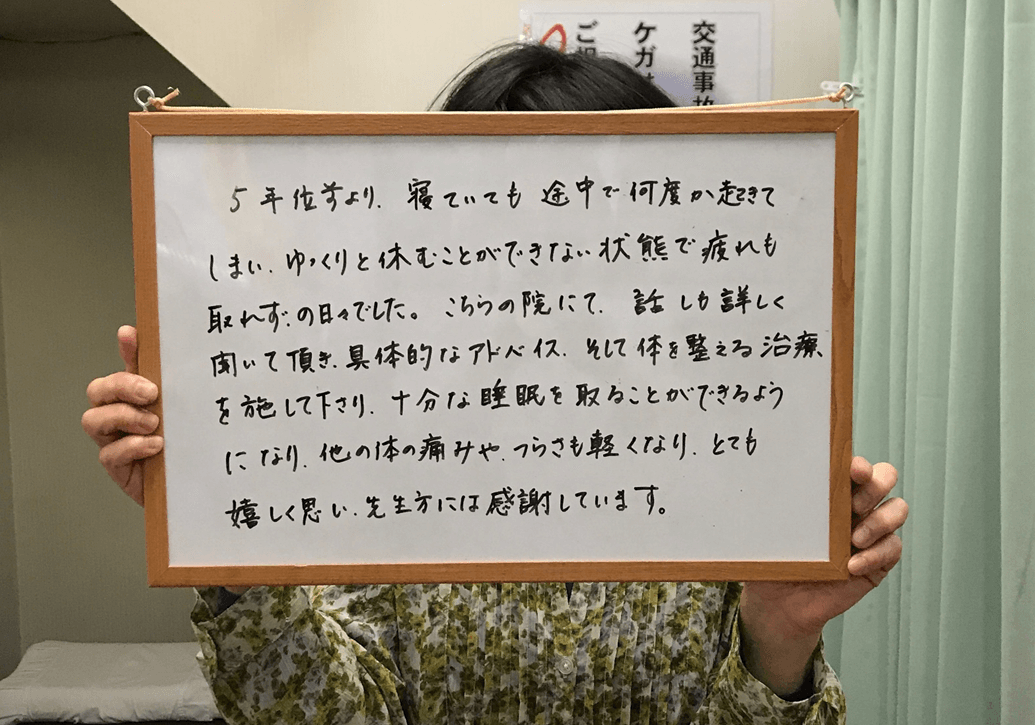 交通事故
ケガ
ご相
5年位前より、寝ていても途中で何度か起きて
しまい、ゆっくりと休むことができない状態で疲れも
取れず、の日々でした。こちらの院にて、話しも詳しく
聞いて頂き、具体的なアドバイス、そして体を整える治療
を施して下さり、十分な睡眠を取ることができるよう
になり、他の体の痛みや、つらさも軽くなり、とても
嬉しく思い、先生方には感謝しています。